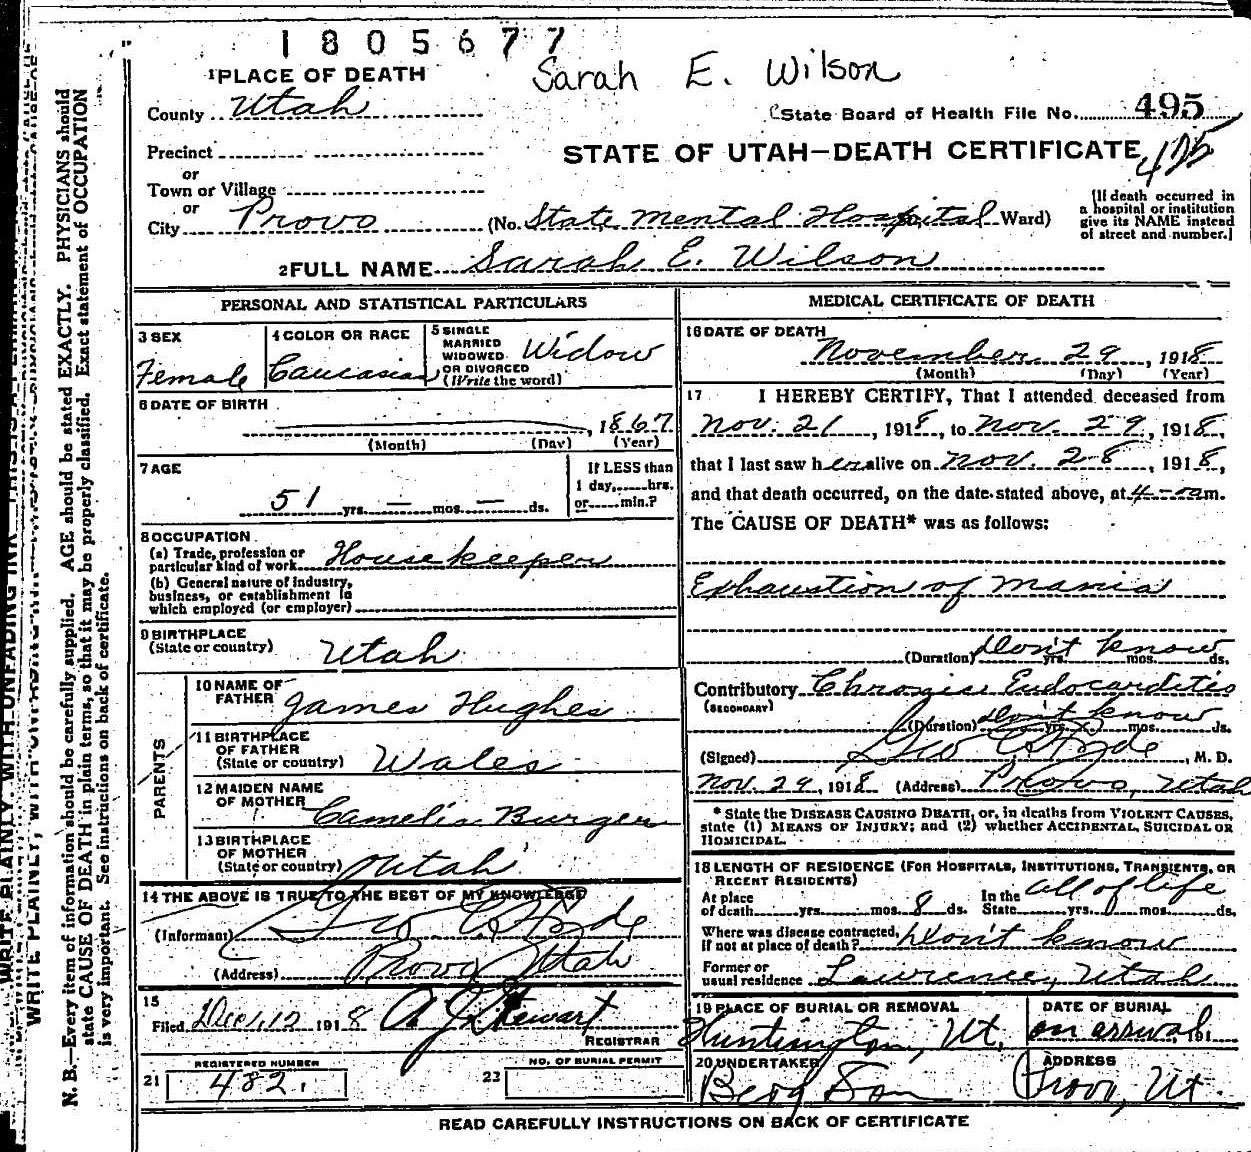 1805677
Sarah E. Wilson
1 PLACE OF DEATH
County Utah
State Board of Health File No. 495
Precinct
STATE OF UTAH—DEATH CERTIFICATE
425
or
Town or Village
or
City Provo (No. State Mental Hospital Ward)
[If death occurred in
a hospital or institution
give its NAME instead
of street and number.]
2 FULL NAME Sarah E. Wilson
PERSONAL AND STATISTICAL PARTICULARS
3 SEX
Female
4 COLOR OR RACE
Caucasian
5 SINGLE
MARRIED
WIDOWED
OR DIVORCED
(Write the word)
Widow
6 DATE OF BIRTH
, 1867
(Month) (Day) (Year)
7 AGE
51 yrs. — mos. — ds.
If LESS than
1 day, hrs.
or min.?
8 OCCUPATION
(a) Trade, profession or
particular kind of work Housekeeper
(b) General nature of industry,
business, or establishment in
which employed (or employer)
9 BIRTHPLACE
(State or country) Utah
PARENTS
10 NAME OF
FATHER James Hughes
11 BIRTHPLACE
OF FATHER
(State or country) Wales
12 MAIDEN NAME
OF MOTHER Camelia Burger
13 BIRTHPLACE
OF MOTHER
(State or country) Utah
14 THE ABOVE IS TRUE TO THE BEST OF MY KNOWLEDGE
(Informant) Geo E Hyde
(Address) Provo Utah
15
Filed Dec. 12 1918 A J Stewart
REGISTRAR
REGISTERED NUMBER
21 482.
NO. OF BURIAL PERMIT
22
MEDICAL CERTIFICATE OF DEATH
16 DATE OF DEATH
November 29, 1918
(Month) (Day) (Year)
17 I HEREBY CERTIFY, That I attended deceased from
Nov. 21, 1918, to Nov. 29, 1918,
that I last saw her alive on Nov. 28, 1918,
and that death occurred, on the date stated above, at 4 am.
The CAUSE OF DEATH* was as follows:
Exhaustion of Mania
(Duration) Don't know yrs. mos. ds.
Contributory Chronic Endocarditis
(SECONDARY)
(Duration) Don't know yrs. mos. ds.
(Signed) Geo E Hyde, M. D.
Nov. 29, 1918 (Address) Provo, Utah
* State the DISEASE CAUSING DEATH, or, in deaths from VIOLENT CAUSES,
state (1) MEANS OF INJURY; and (2) whether ACCIDENTAL, SUICIDAL OR
HOMICIDAL.
18 LENGTH OF RESIDENCE (FOR HOSPITALS, INSTITUTIONS, TRANSIENTS, OR
RECENT RESIDENTS)
At place
of death yrs. mos. 8 ds.
In the
State yrs. mos. ds. all of life
Where was disease contracted,
If not at place of death? Don't know
Former or
usual residence Lawrence, Utah
19 PLACE OF BURIAL OR REMOVAL
Huntington, Ut.
DATE OF BURIAL
on arrival, 191
20 UNDERTAKER
Berg & Son
ADDRESS
Provo, Ut.
READ CAREFULLY INSTRUCTIONS ON BACK OF CERTIFICATE
WRITE PLAINLY, WITH UNFADING INK
N. B.—Every item of information should be carefully supplied. AGE should be stated EXACTLY. PHYSICIANS should
state CAUSE OF DEATH in plain terms, so that it may be properly classified. Exact statement of OCCUPATION
is very important. See instructions on back of certificate.